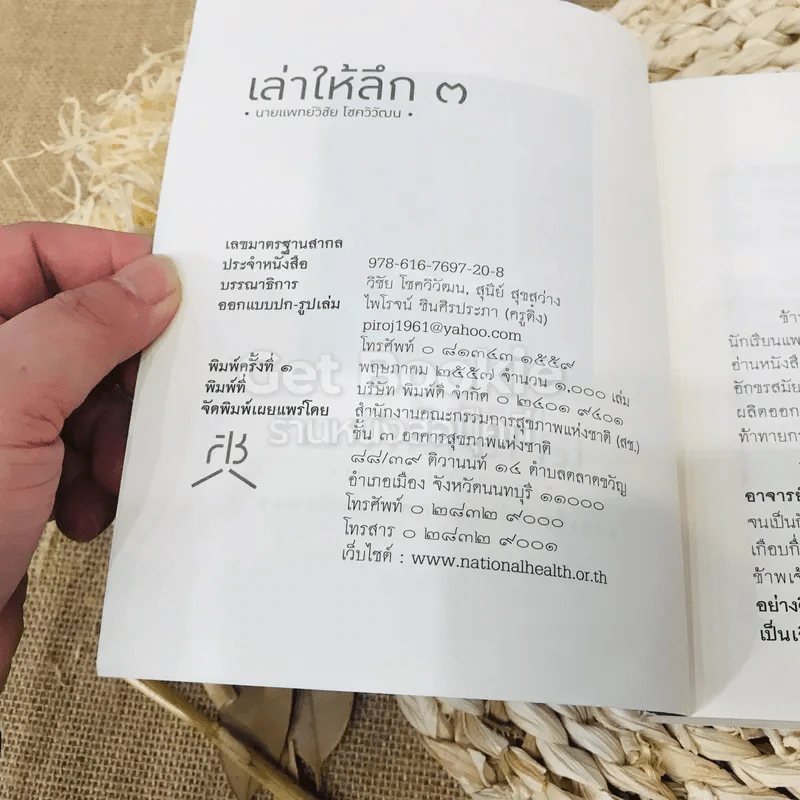 เล่าให้ลึก ๓
• นายแพทย์วิชัย โชควิวัฒน •
เลขมาตรฐานสากล
ประจำหนังสือ 978-616-7697-20-8
บรรณาธิการ วิชัย โชควิวัฒน, สุนีย์ สุขสว่าง
ออกแบบปก-รูปเล่ม ไพโรจน์ ชินศิรประภา (ครูติ๋ง)
piroj1961@yahoo.com
โทรศัพท์ ๐ ๘๑๓๔๓ ๑๕๕๙
พิมพ์ครั้งที่ ๑ พฤษภาคม ๒๕๕๗ จำนวน ๑,๐๐๐ เล่ม
พิมพ์ที่ บริษัท พิมพ์ดี จำกัด ๐ ๒๔๐๑ ๙๔๐๑
จัดพิมพ์เผยแพร่โดย สำนักงานคณะกรรมการสุขภาพแห่งชาติ (สช.)
ชั้น ๓ อาคารสุขภาพแห่งชาติ
๘๘/๓๙ ติวานนท์ ๑๔ ตำบลตลาดขวัญ
อำเภอเมือง จังหวัดนนทบุรี ๑๑๐๐๐
โทรศัพท์ ๐ ๒๘๓๒ ๙๐๐๐
โทรสาร ๐ ๒๘๓๒ ๙๐๐๑
เว็บไซต์ : www.nationalhealth.or.th
นักเรียนแพ
อ่านหนังสือ
อักขรสมัย
ผลิตออก
ท้าทายกา
อาจารย์
จนเป็น
เกือบกึ่
ข้าพเจ้
เป็นเ